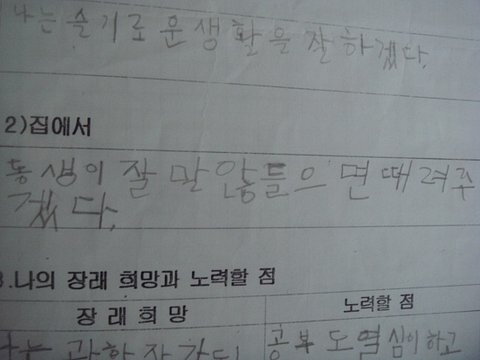 나는 슬기로운생활을 잘하겠다.
2)집에서
동생이 잘 말 않들으면 때려주
겠다.
3.나의 장래 희망과 노력할 점
장 래 희 망 노력할 점
나는 과학자가 공부도 열심이하고